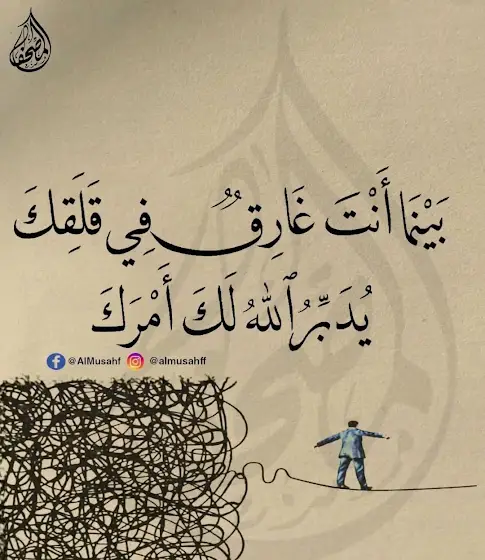 المصحف
بَيْنَمَا أَنْتَ غَارِقٌ فِي قَلَقِكَ
يُدَبِّرُ ٱللَّهُ لَكَ أَمْرَكَ
@AlMusahf @almusahff